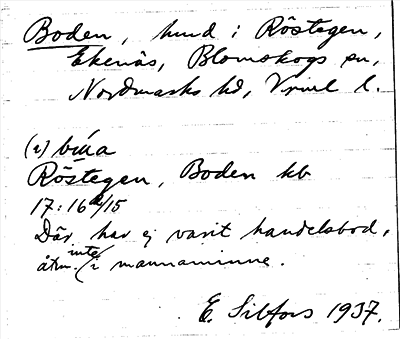 Boden, hmd i Röstegen,
Ekenäs, Blomskogs sn,
Nordmarks hd, Vrml l.
(i) bu̇a
Röstegen, Boden kb
17:16 a/15
Där har ej varit handelsbod,
åtm. inte i mannaminne.
E. Silfors 1937.